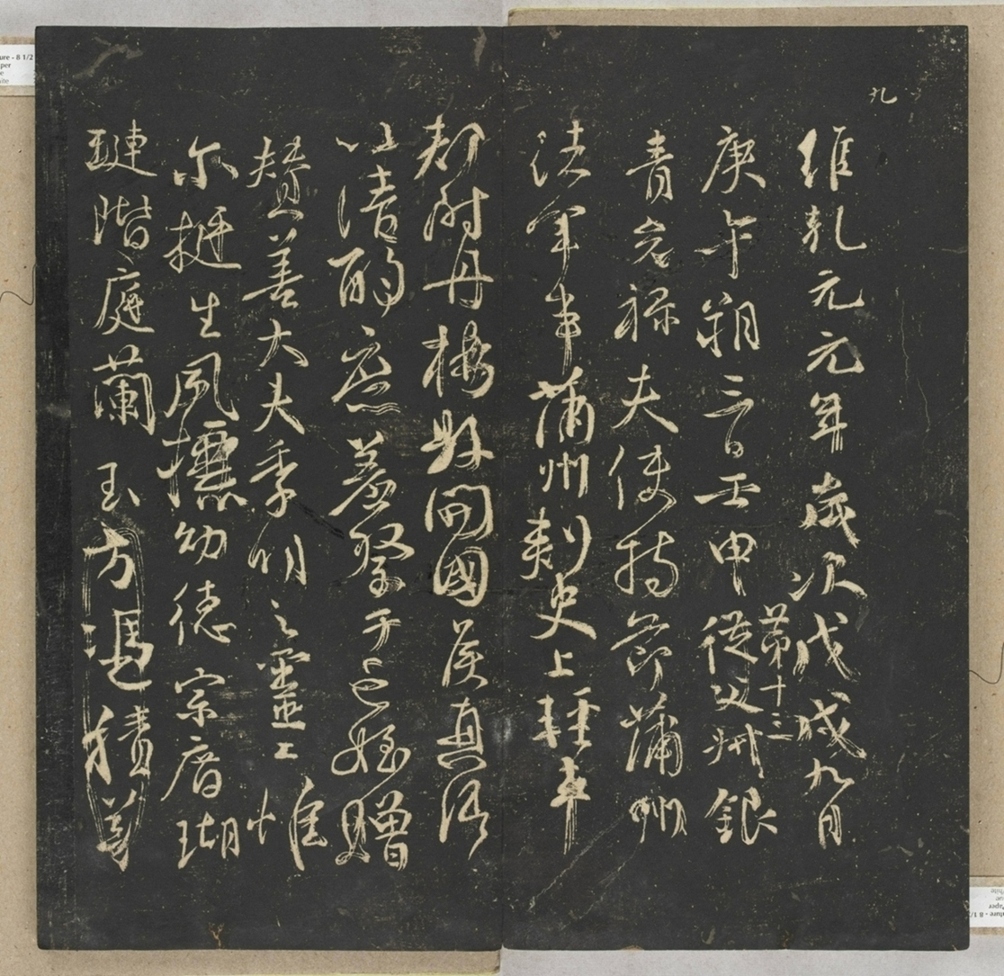 九
維乾元元年歲次戊戌九月
庚午朔三日壬申第十三從父州銀
青光祿夫使持節蒲州
諸軍事蒲州刺史上輕車
都尉丹楊縣開國侯真卿
以清酌庶羞祭于亡姪贈
贊善大夫季明之靈曰惟
尔挺生夙標幼德宗廟瑚
璉階庭蘭玉方憑積善